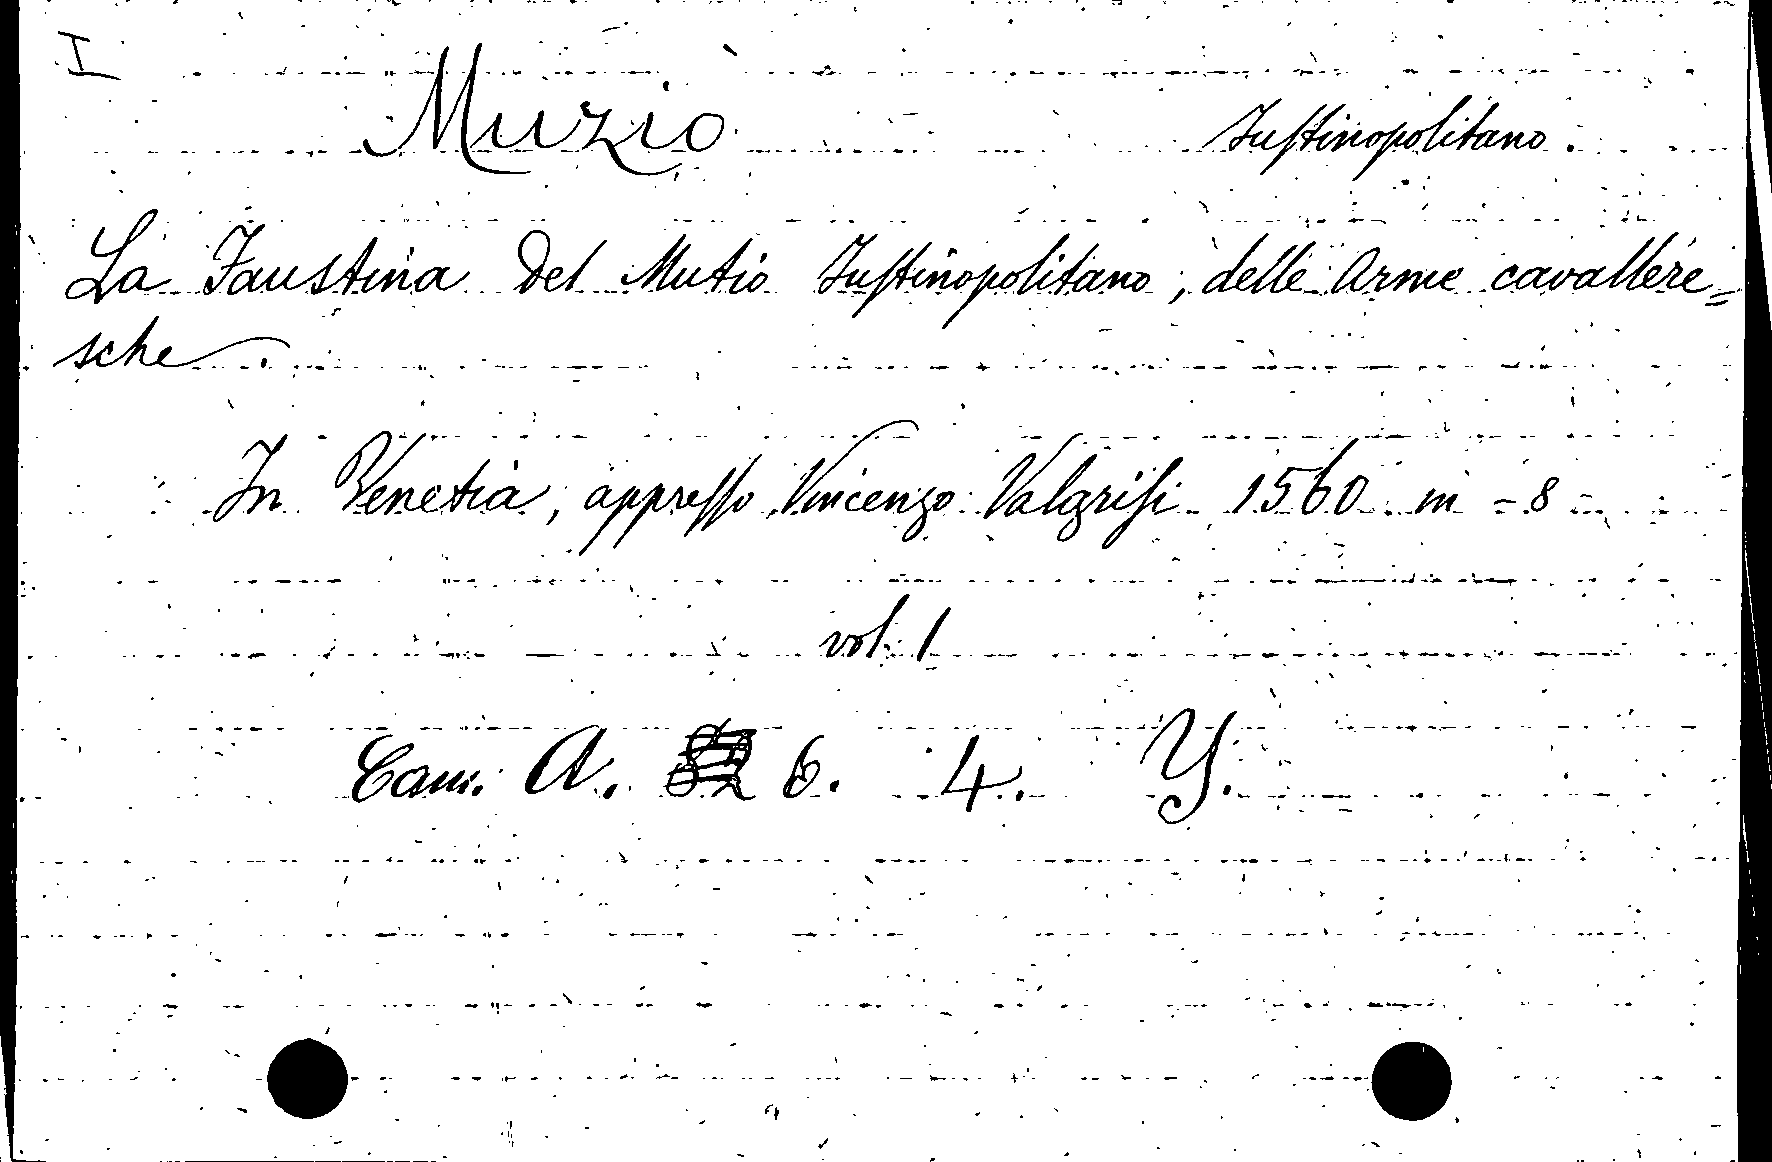 I
Muzio Justinopolitano.
La Faustina Del Mutio Justinopolitano, delle Arme cavallere=
sche.
In Venetia, appresso Vincenzo Valgrisi 1560 in-8
vol. 1
Cam. A. 6. 4. Y.